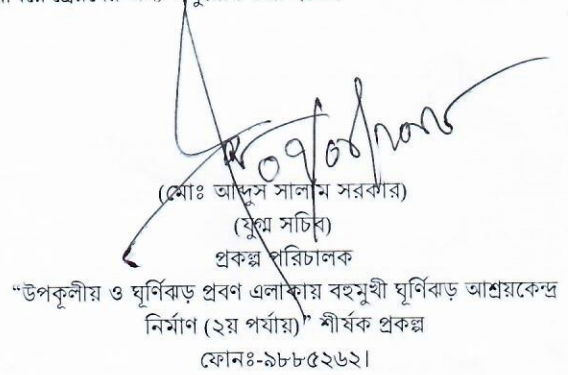 ০৭/০৮/২০১৮
(মোঃ আব্দুস সালাম সরকার)
(যুগ্ম সচিব)
প্রকল্প পরিচালক
“উপকূলীয় ও ঘূর্ণিঝড় প্রবণ এলাকায় বহুমুখী ঘূর্ণিঝড় আশ্রয়কেন্দ্র
নির্মাণ (২য় পর্যায়)” শীর্ষক প্রকল্প
ফোনঃ-৯৮৮৫২৬২।